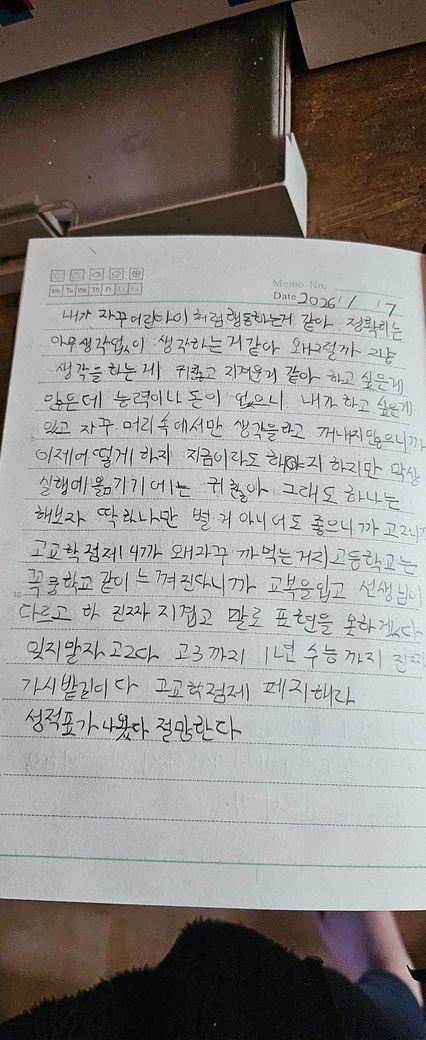 Mo Tu We Th Fr Sa Su
Memo No.
Date 2026 / 1 / 7
내가 자꾸 어린아이처럼 행동하는거 같아 정확히는
아무생각없이 생각하는거같아 왜그럴까 그냥
생각을 하는게 귀찮고 지겨운게 같아 하고 싶은게
많은데 능력이나 돈이 없으니 내가 하고 싶은게
있고 자꾸 머리속에서만 생각을하고 꺼내지않으니까
이제어떻게하지 지금이라도 해야지 하지만 막상
실행에옮기기에는 귀찮아 그래도 하나는
해보자 딱하나만 별거 아니어도 좋으니까 고2니까
고교학점제니까 왜자꾸 까먹는거지 고등학교는
꼭 중학교같이 느껴진다니까 교복을입고 선생님이
다르고 하 진짜 지겹고 말로 표현을 못하겠다
잊지말자 고2다 고3까지 1년 수능까지 진짜
가시밭길이다 고교학점제 폐지해라
성적표가 나왔다 절망한다